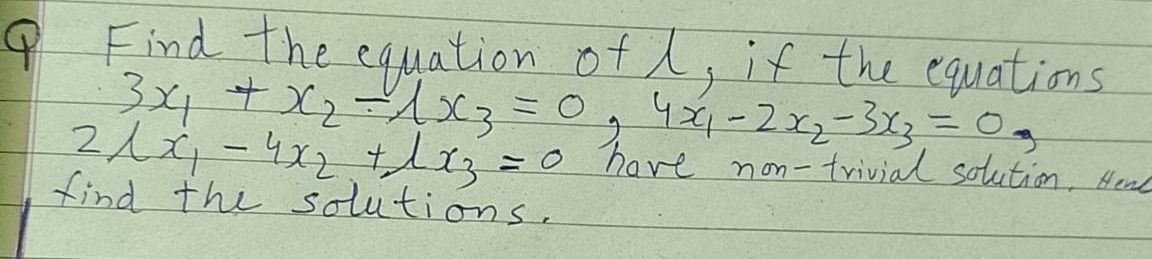 Q Find the equation of λ, if the equations
3x₁ + x₂ - λx₃ = 0, 4x₁ - 2x₂ - 3x₃ = 0,
2λx₁ - 4x₂ + λx₃ = 0 have non-trivial solution. Henc
find the solutions.